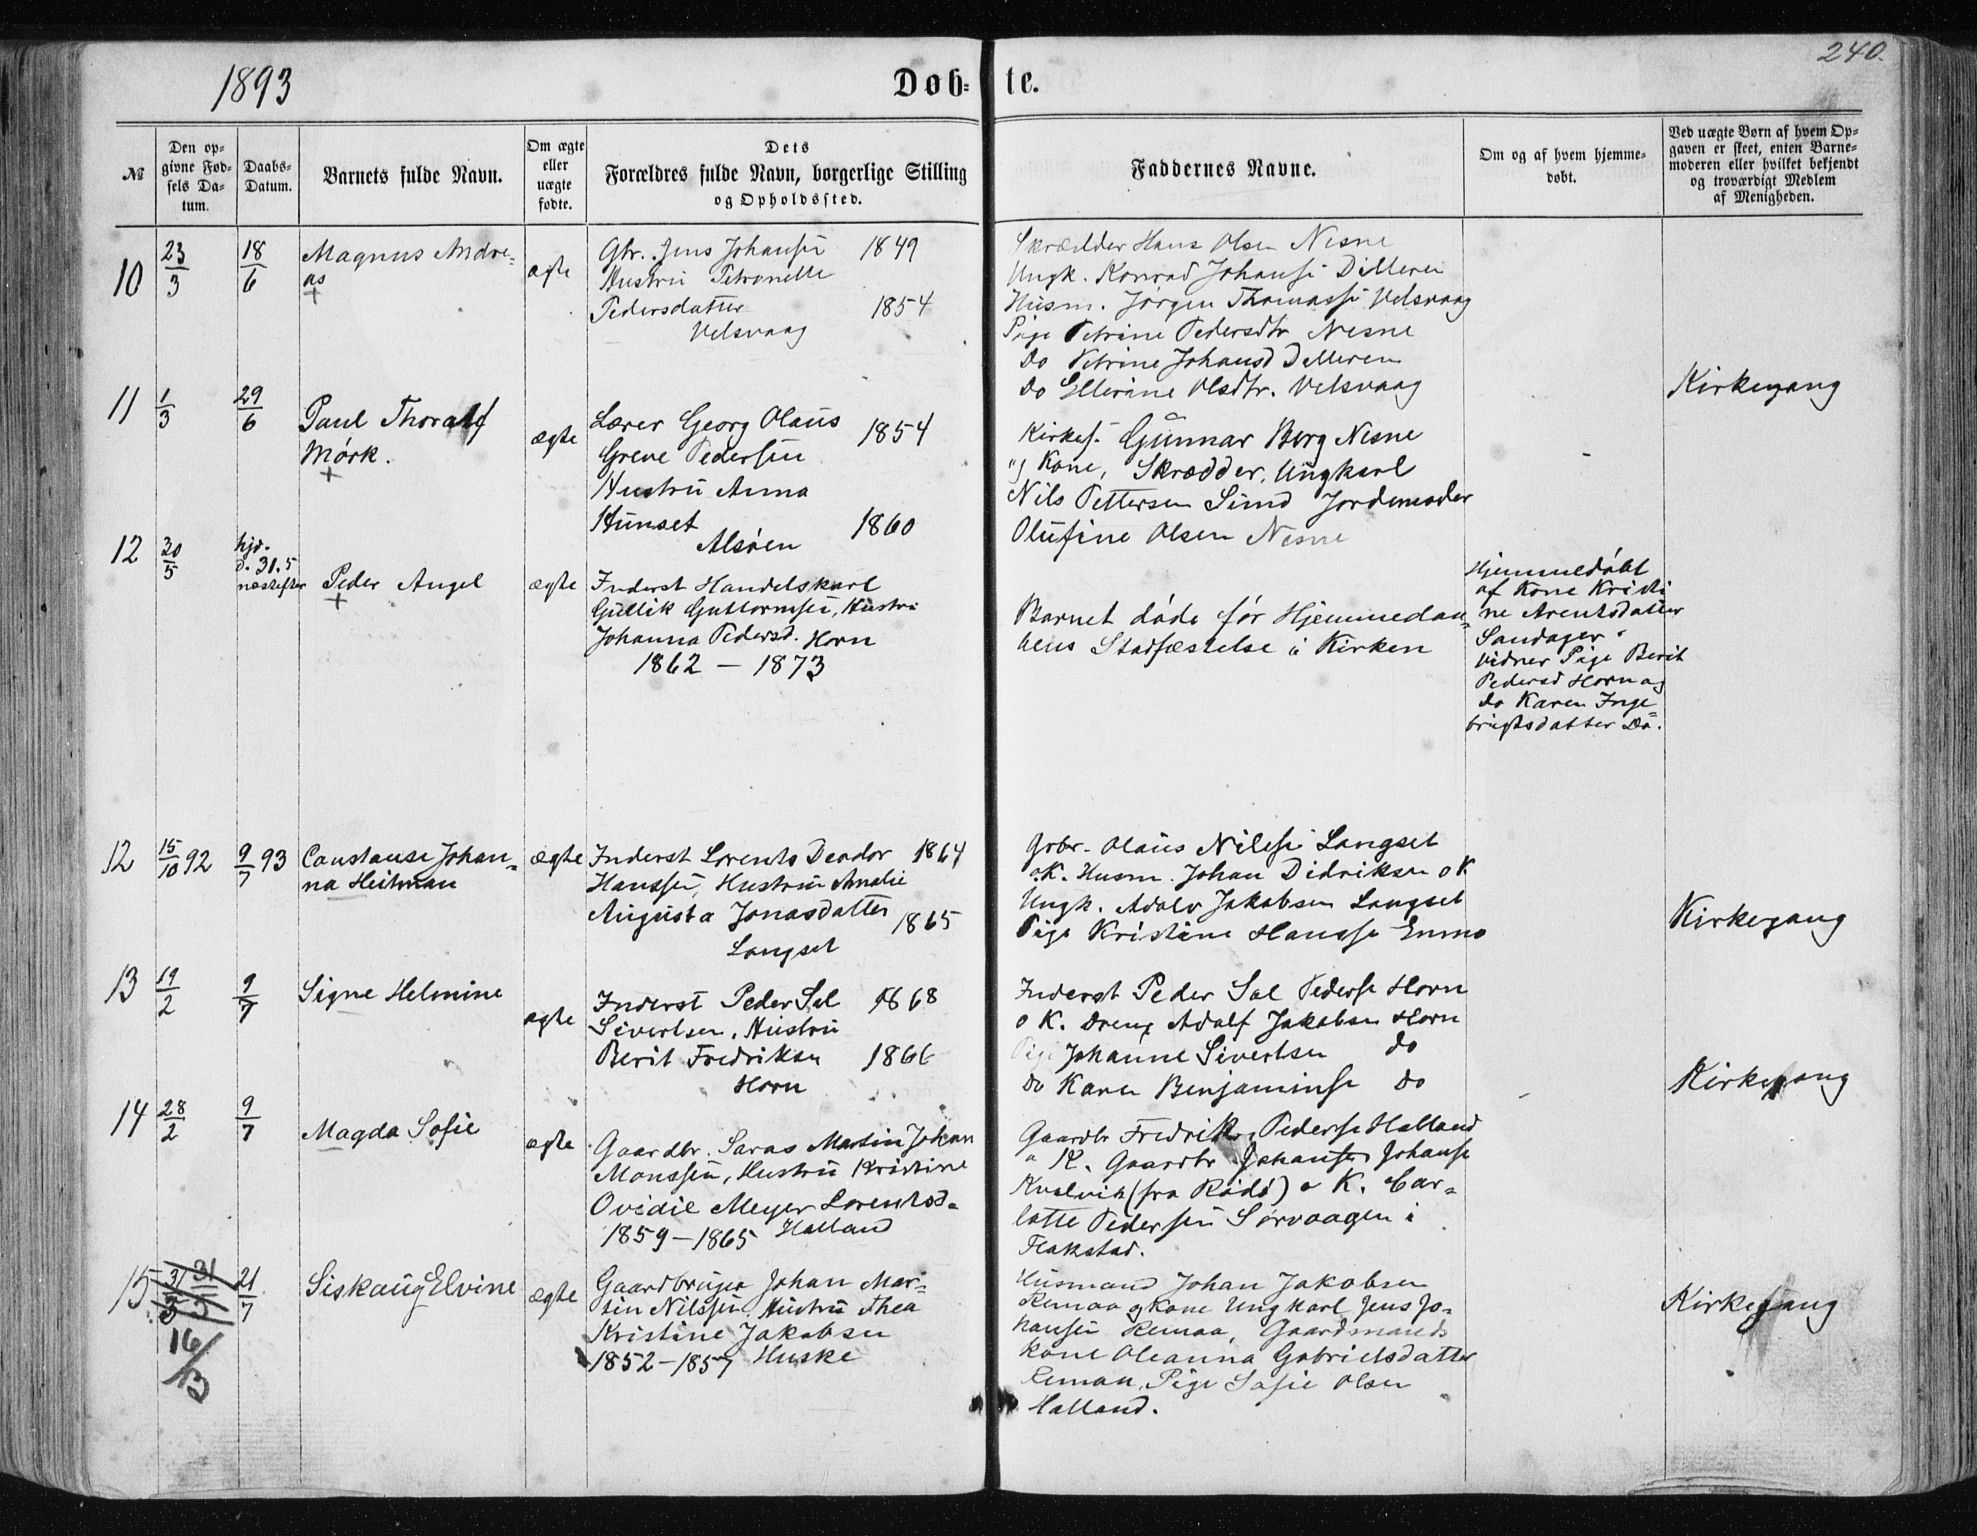 240.
1893
Døb-
te.
№
Den op-
givne Fød-
sels Da-
tum.
Daabs-
Datum.
Barnets fulde Navn.
Om ægte
eller
uægte
fødte.
Dets
Forældres fulde Navn, borgerlige Stilling
og Opholdssted.
Faddernes Navne.
Om og af hvem hjemme-
døbt.
Ved uægte Børn af hvem Op-
gaven er skeet, enten Barne-
moderen eller hvilket bekjendt
og troværdigt Medlem
af Menigheden.
10
23/3
18/6
Magnus Andre-
as
+
ægte
Gbr. Jens Johansen 1849
Hustru Petronelle
Pedersdatter 1854
Velsvaag
Skrædder Hans Olsen Nesne
Ungk. Konrad Johansen
Husm. Jørgen Thomassen Velsvaag
Pige Petrine Pedersdtr Nesne
Do Petrine Johansd
Do Ellerine Olsdtr. Velsvaag
11
1/3
29/6
Paul Thoralf
Mörk.
+
ægte
Lærer Georg Olaus 1854
Greve Pedersen
Hustru Anna
Hunset 1860
Alsøen
Kirkes. Gunnar Berg Nesne
og Kone, Skrædder, Ungkarl
Nils Pettersen Sund Jordemoder
Olufine Olsen Nesne
Kirkegang
12
30/5
hjd.
d. 31.5
næstefter
Peder Angel
+
ægte
Inderst Handelskarl
Gullik Guttormsen, Hustru
Johanna Pedersd. Horn
1862 — 1873
Barnet døde før Hjemmedaa-
bens Stadfæstelse i Kirken
Hjemmedøbt
af Kone Kristi
ne Arentsdatter
Sandager
vidner Pige Berit
Pedersd Horn og
do Karen Inge-
brigtsdatter Do.
12
15/10 92
9/7 93
Constanse Johan-
na Heitman
ægte
Inderst Lorents Deodor 1864
Hanssen, Hustru Amalie
Augusta Jonasdatter 1865
Langset
Grbr. Olaus Nilsen Langset
o.K. Husm. Johan Didriksen o K
Ungk. Adolv Jakobsen Langset
Pige Kristine Hansse Enmo
Kirkegang
13
19/2
9/7
Signe Helmine
ægte
Inderst Peder Sal 1868
Sivertsen, Hustru
Berit Fredriksen 1866
Horn
Inderst Peder Sal Peders Horn
o K. Dreng Adolf Jakobsen Horn
Pige Johanne Sivertsen do
do Karen Benjaminse do
Kirkegang
14
28/2
9/7
Magda Sofie
ægte
Gaardbr. Saras Martin Johan
Monssen, Hustru Kristine
Ovidie Meyer Lorentsd.
1859 – 1865 Halland
Gaardbr Fredrik Pederse Halland
o K. Gaardbr Johansen Johanse
Kvalvik (fra Rödö) o K. Car-
lotte Pedersen Sörvaagen i
Flakstad.
15
31/5 31/5
16/3
21/7
Siskaug Elvine
ægte
Gaardbruger Johan Mar-
tin Nilssen Hustru Thea
Kristine Jakobsen
1852 – 1857 Huske
Husmand Johan Jakobsen
Remaa og Kone Ungkarl Jens Jo-
hansen Remaa, Gaardmands
kone Oleanna Gabrielsdatter
Remaa, Pige Sofie Olsen
Halland.
Kirkegang